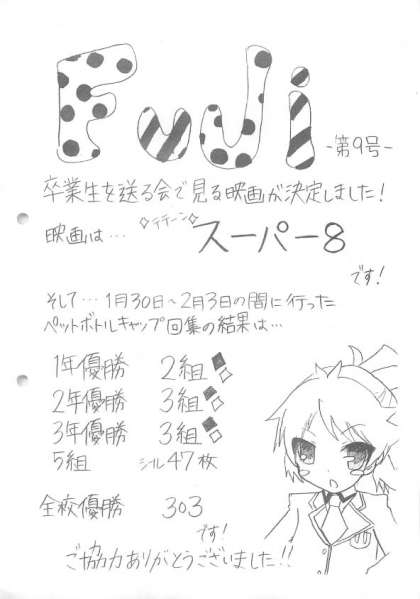 FuJi
-第9号-
卒業生を送る会で見る映画が決定しました!
映画は…
◇テテーン◇
スーパー8
です!
そして…1月30日~2月3日の間に行った
ペットボトルキャップ回集の結果は…
1年優勝 2組
2年優勝 3組
3年優勝 3組
5組 シール47枚
全校優勝 303
です!
ご協力ありがとうございました!!